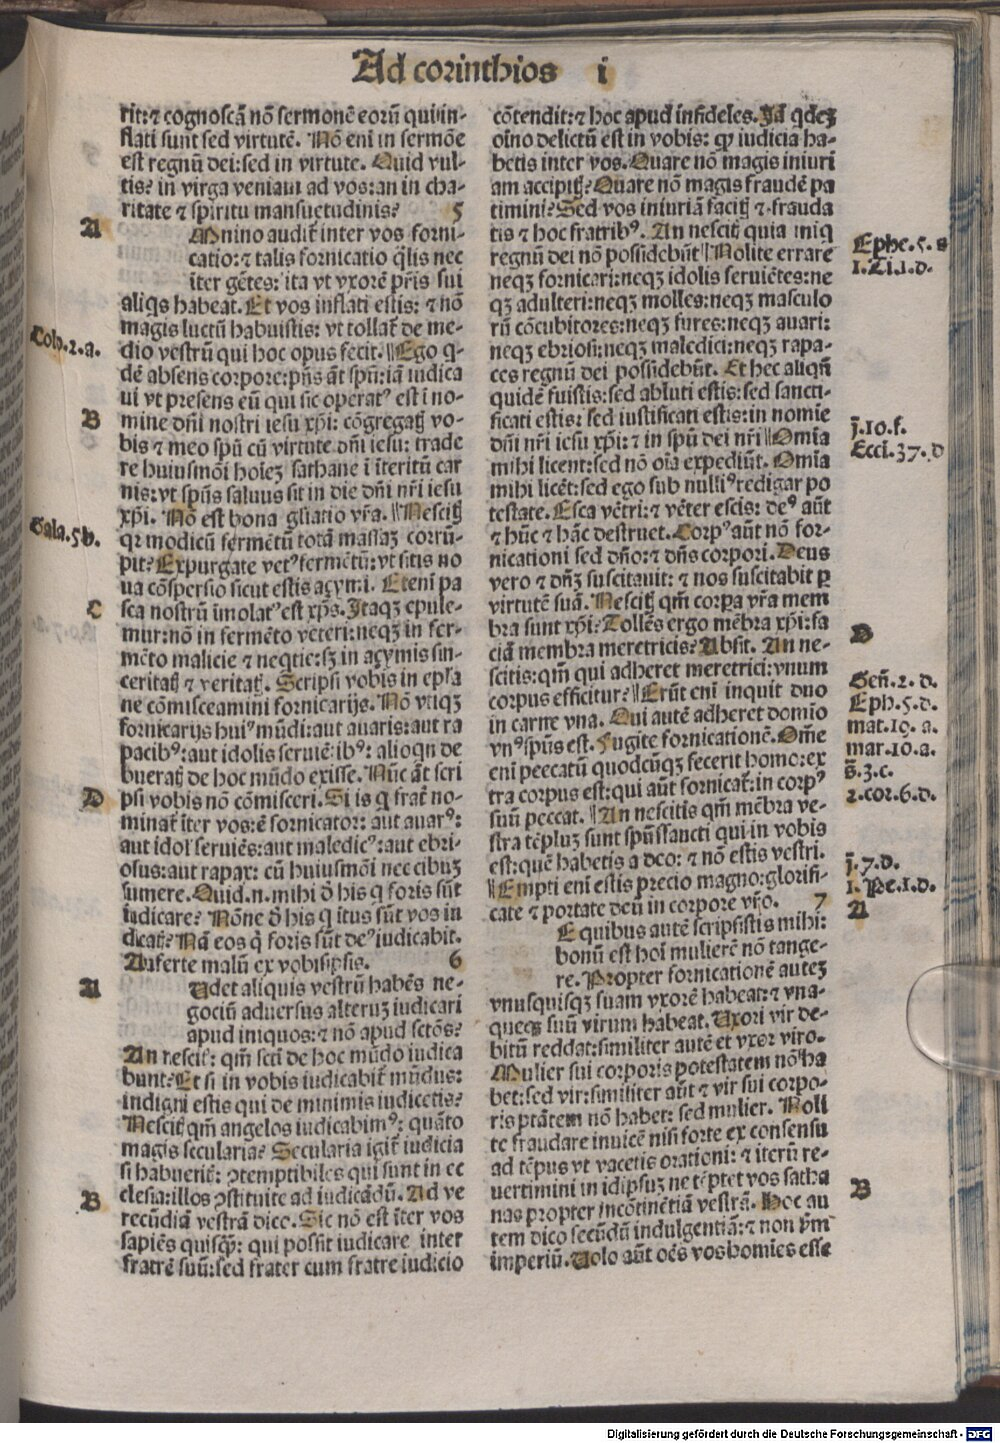 Ad corinthios i
rit: ⁊ cognoscā nō sermonē eorū qui in-
flati sunt sed virtutē. Nō eni in sermōe
est regnū dei: sed in virtute. Quid vul-
tis? in virga veniam ad vos: an in cha-
ritate ⁊ spiritu mansuetudinis? 5
A
Mnino audit̄ inter vos forni-
catio: ⁊ talis fornicatio q̄lis nec
iter gētes: ita vt vxorē pr̄is sui
aliqs habeat. Et vos inflati estis: ⁊ nō
magis luctū habuistis: vt tollat̄ de me-
Colo.2.a.
dio vestrū qui hoc opus fecit. ‖Ego q-
dē absens corpore: pn̄s āt spū: iā iudica
ui vt presens eū qui sic operatꝰ est i no-
B
mine dn̄i nostri iesu xp̄i: cōgregatꝭ vo-
bis ⁊ meo spū cū virtute dn̄i iesu: trade
re huiusmōi hoīeꝫ sathane i īteritū car
nis: vt spūs saluus sit in die dn̄i nr̄i iesu
xp̄i. Nō est bona gl̄iatio vr̄a. ‖Nescitꝭ
Gala.5b.
qꝛ modicū fermētū totā massaꝫ corrū-
pit? Expurgate vetꝰ fermētū: vt sitis no
ua cōspersio sicut estis açymi. Eteni pa
C
sca nostrū īmolatꝰ est xp̄s. Itaqꝫ epule-
mur: nō in fermēto veteri: neqꝫ in fer-
mēto malicie ⁊ neqtie: sꝫ in açymis sin-
ceritatꝭ ⁊ veritatꝭ. Scripsi vobis in epl̄a
ne cōmisceamini fornicarijs. Nō vtiqꝫ
fornicarijs huiꝰ mūdi: aut auaris: aut ra
pacibꝰ: aut idolis seruiētibꝰ: alioqn de
bueratꝭ de hoc mūdo exisse. Nūc āt scri
D
psi vobis nō cōmisceri. Si is q frat̄ no-
minat̄ īter vos: ē fornicator: aut auarꝰ:
aut idol̄ seruiēs: aut maledicꝰ: aut ebri-
osus: aut rapax: cū huiusmōi nec cibuꝫ
sumere. Quid.n. mihi ð his q foris sūt
iudicare? Nōne ð his q ītus sūt vos iu
dicatꝭ? Nā eos q̇ foris sūt deꝰ iudicabit.
Auferte malū ex vobisipsis. 6
A
Udet aliquis vestrū habēs ne-
gociū aduersus alteruꝫ iudicari
apud iniquos: ⁊ nō apud sctōs?
An nescitꝭ: qm̄ scti de hoc mūdo iudica
bunt? Et si in vobis iudicabit̄ mūdus:
indigni estis qui de minimis iudicetis?
Nescitꝭ qm̄ angelos iudicabimꝰ: quāto
magis secularia? Secularia igit̄ iudicia
si habueritꝭ: ꝯtemptibiles qui sunt in ec
B
clesia: illos ꝯstituite ad iudicādū. Ad ve
recūdiā vestrā dico. Sic nō est īter vos
sapiēs quisqꝫ: qui possit iudicare inter
fratrē suū: sed frater cum fratre iudicio
cōtendit: ⁊ hoc apud infideles. Iā qdeꝫ
oīno delictū est in vobis: qꝫ iudicia ha-
betis inter vos. Quare nō magis iniuri
am accipitꝭ? Quare nō magis fraudē pa
timini? Sed vos iniuriā facitꝭ ⁊ frauda
tis ⁊ hoc fratribꝰ. An nescitꝭ quia iniq
Ephe.5.a
regnū dei nō possidebūt ‖Nolite errare
1.Ti.1.d.
neqꝫ fornicari: neqꝫ idolis seruiētes: ne
qꝫ adulteri: neqꝫ molles: neqꝫ masculo
rū cōcubitores: neqꝫ fures: neqꝫ auari:
neqꝫ ebriosi: neqꝫ maledici: neqꝫ rapa-
ces regnū dei possidebūt. Et hec aliqn̄
quidē fuistis: sed abluti estis: sed sancti-
ficati estis: sed iustificati estis: in nomīe
j.10.f.
dn̄i nr̄i iesu xp̄i: ⁊ in spū dei nr̄i ‖Omīa
Ecci.37.d
mihi licent: sed nō oīa expediūt. Omīa
mihi licēt: sed ego sub nulliꝰ redigar po
testate. Esca vētri: ⁊ vēter escis: deꝰ aūt
⁊ hūc ⁊ hāc destruet. Corpꝰ aūt nō for-
nicationi sed dn̄o: ⁊ dn̄s corpori. Deus
vero ⁊ dn̄ꝫ suscitauit: ⁊ nos suscitabit ꝑ
virtutē suā. Nescitꝭ qm̄ corpa vr̄a mem
bra sunt xp̄i? Tollēs ergo mēbra xp̄i: fa
D
ciā membra meretricis? Absit. An ne-
scitis: qm̄ qui adheret meretrici: vnum
Gen̄.2.d.
corpus efficitur? ‖Erūt eni inquit duo
Eph.5.d.
in carne vna. Qui autē adheret domīo
mat.19.a.
vnꝰ spūs est. Fugite fornicationē. Om̄e
mar.10.a.
eni peccatū quodcūqꝫ fecerit homo: ex
s̄.3.c.
tra corpus est: qui aūt fornicat̄: in corpꝰ
2.cor.6.d.
suū peccat. ‖An nescitis qm̄ mēbra ve-
stra tēpluꝫ sunt spūssancti qui in vobis
est: quē habetis a deo: ⁊ nō estis vestri.
j.7.d.
‖Empti eni estis precio magno: glorifi-
1.Pe.1.d.
cate ⁊ portate deū in corpore vr̄o. 7
A
E quibus autē scripsistis mihi:
bonū est hoī mulierē nō tange-
re. Propter fornicationē auteꝫ
vnusquisqꝫ suam vxorē habeat: ⁊ vna-
queqꝫ suū virum habeat. Uxori vir de-
bitū reddat: similiter autē et vxor viro.
Mulier sui corporis potestatem nō ha
bet: sed vir: similiter aūt ⁊ vir sui corpo-
ris ptātem nō habet: sed mulier. Noli
te fraudare inuicē nisi forte ex consensu
ad tēpus vt vacetis orationi: ⁊ iterū re-
B
uertimini in idipsuꝫ ne tēptet vos satha
nas propter incōtinētiā vestrā. Hoc au
tem dico secūdū indulgentiā: ⁊ non ꝑm̄
imperiū. Uolo aūt oēs vos homīes esse
Digitalisierung gefördert durch die Deutsche Forschungsgemeinschaft - DFG